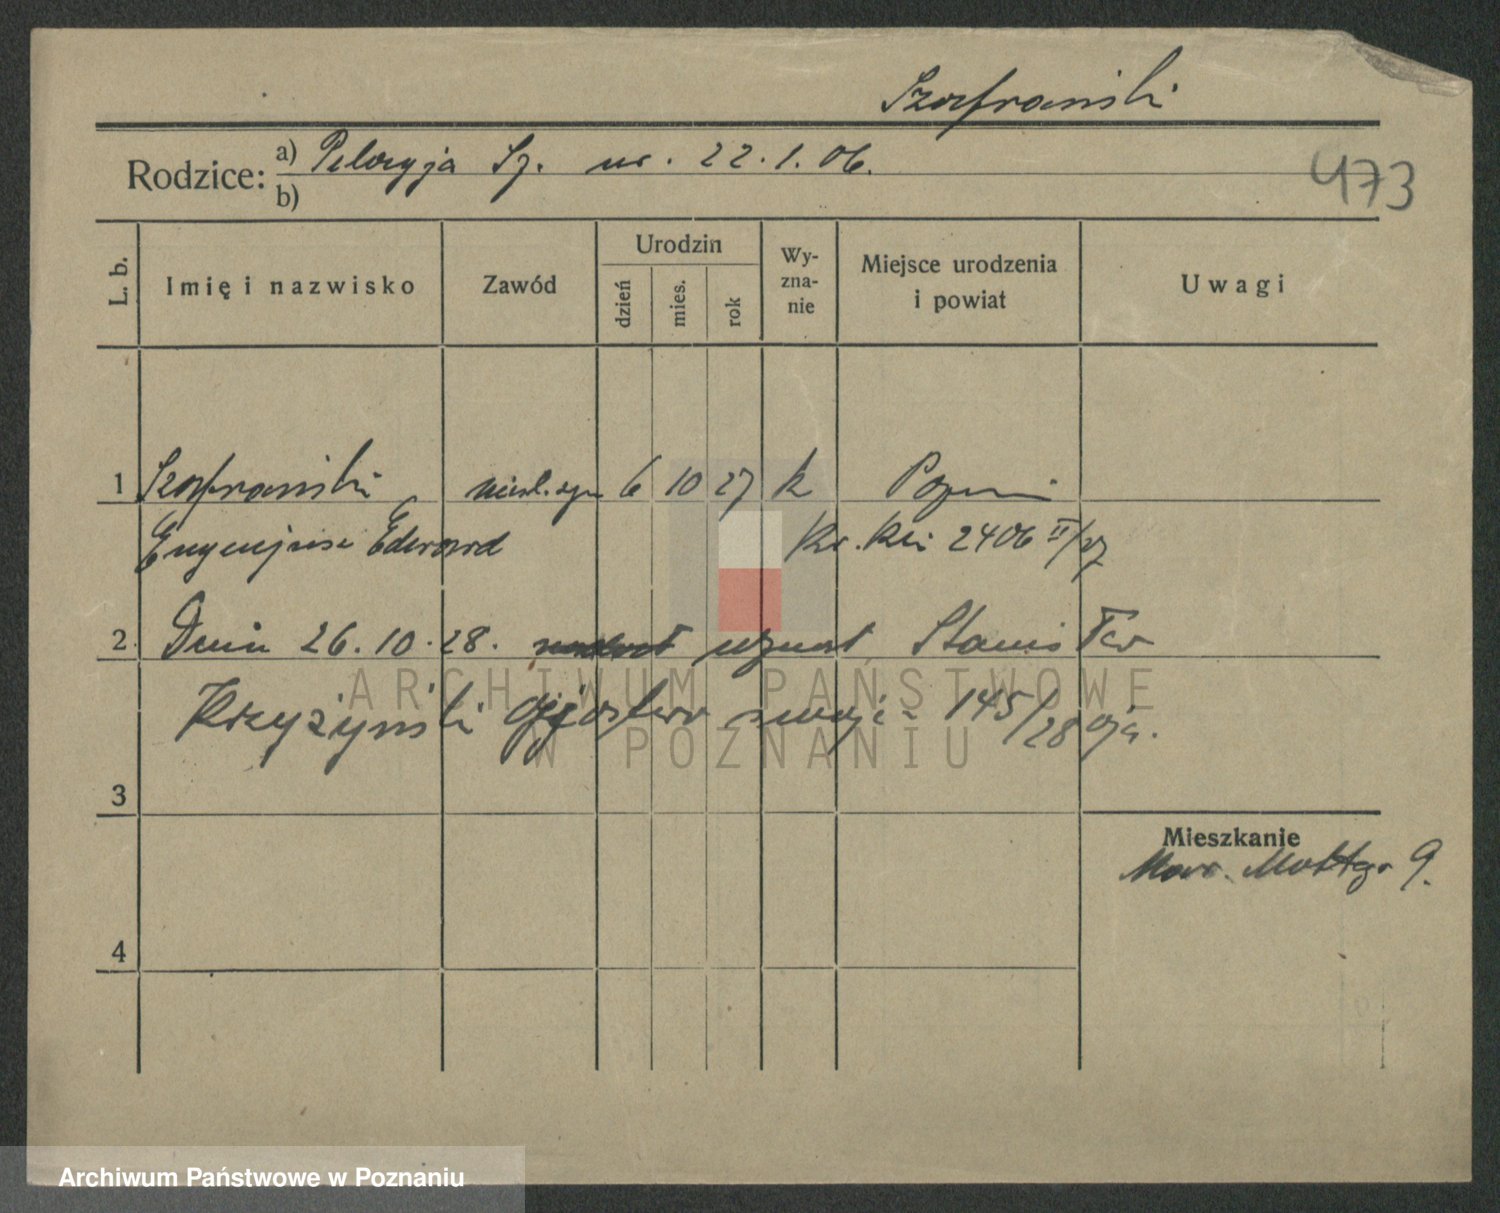 Szafrański
Rodzice: a) Pelagja Sz. ur. 22.1.06.
b)
473
L. b.
Imię i nazwisko
Zawód
Urodzin
dzień
mies.
rok
Wy-
zna-
nie
Miejsce urodzenia
i powiat
Uwagi
1 Szafrański 6 10 27 k Poznań
Eugenjusz Edward 2406 II/27
2 Dnia 26.10.28. uznał Stanisław
Krzyżyński ojcostwo 145/28
3
Mieszkanie
Mar. Mottego 9.
4
ARCHIWUM PAŃSTWOWE
W POZNANIU
Archiwum Państwowe w Poznaniu